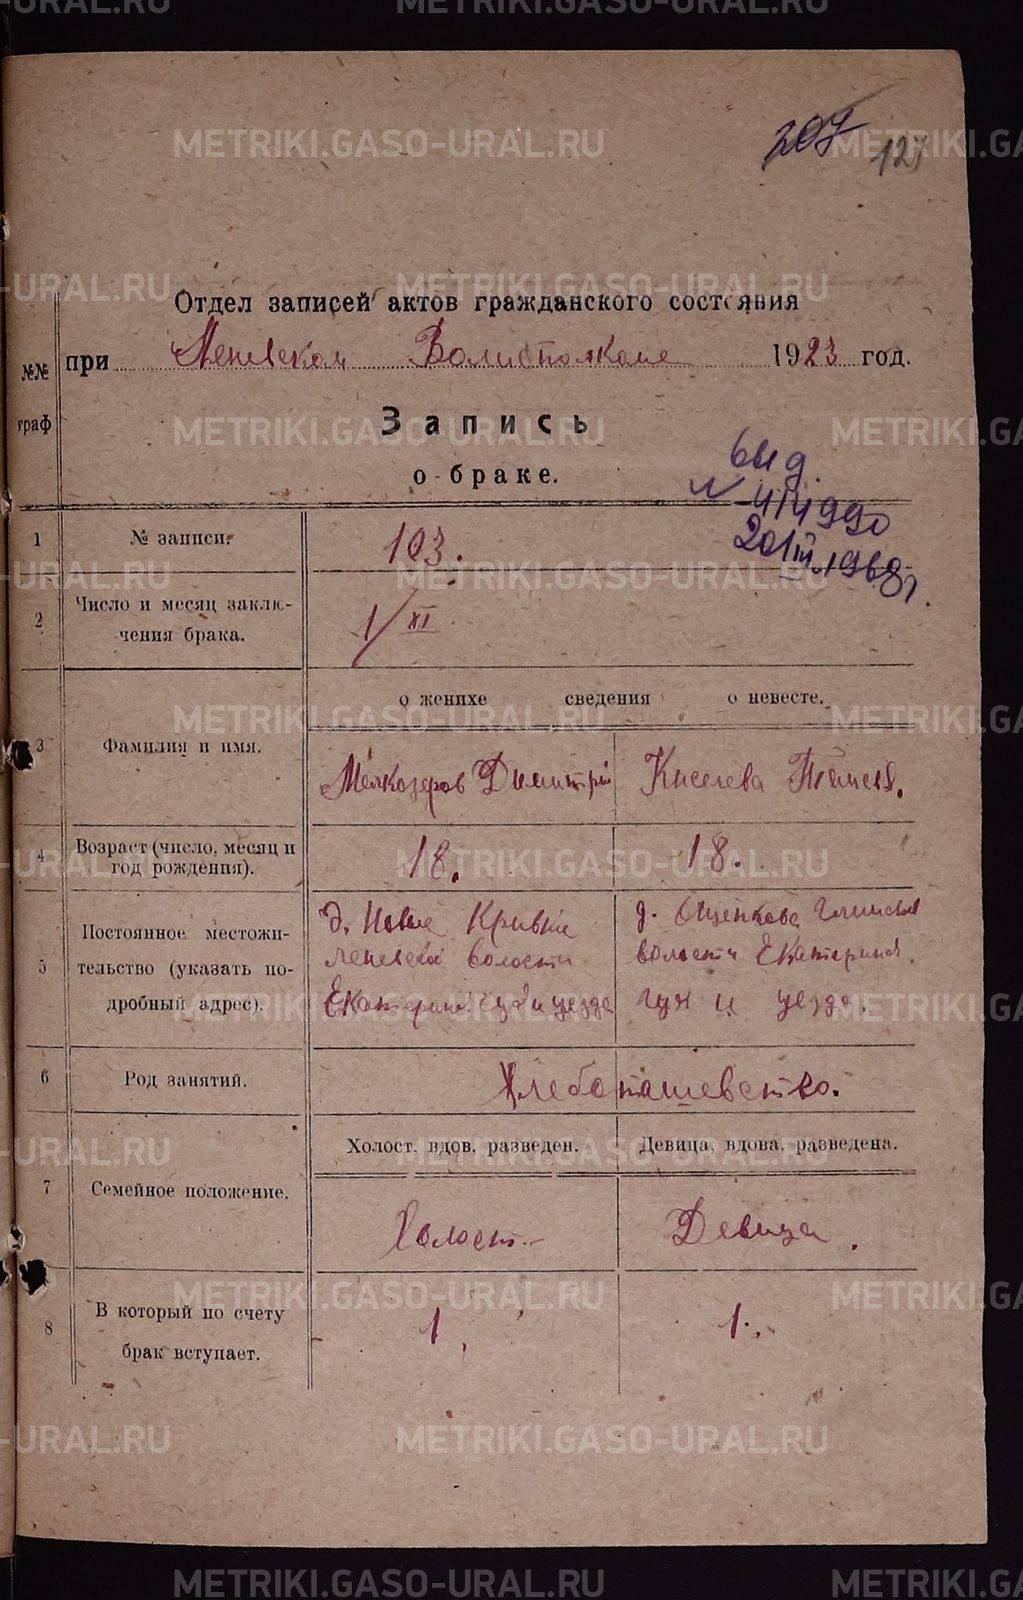 207
127
Отдел записей актов гражданского состояния
№№ граф
при Леневском Волисполкоме 1923 год.
Запись
о браке.
выд.
N 414990
20/III.1968г.
1 № записи: 103.
2 Число и месяц заключения брака. 1/XI
о женихе сведения о невесте.
3 Фамилия и имя. Мелкозеров Димитрий Киселева
4 Возраст (число, месяц и год рождения). 18. 18.
5 Постоянное местожительство (указать подробный адрес).
д. Новые Кривки
Леневской волости
Екатерин. губ и уезда
д. Ощепкова Глинской
волости Екатеринб.
губ и уезда.
6 Род занятий. Хлебопашевство.
Холост, вдов, разведен. Девица, вдова, разведена.
7 Семейное положение. Холост. Девица.
8 В который по счету брак вступает. 1 1.
METRIKI.GASO-URAL.RU